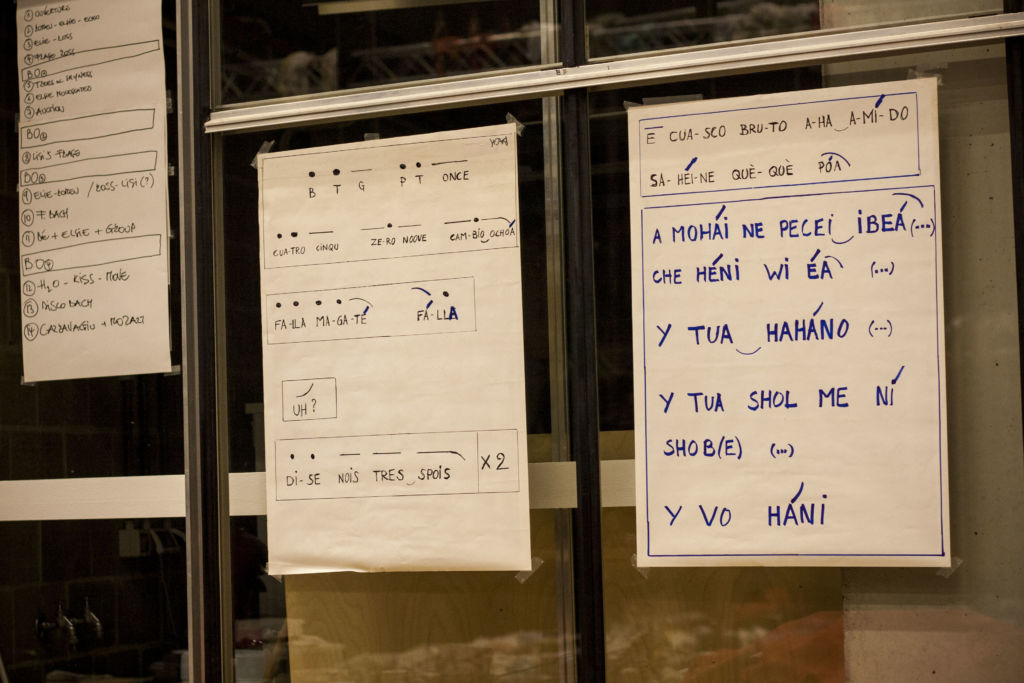 ① OUVERTURE
③ ELFIE - LOSS
BO
BO
BO
⑩ F BACH
⑪ DE + ELFIE + GROUP
BO
⑫ H2O - KISS - MOVE
⑬ DISCO BACH
⑭ CARRAVAGIU + MOZART
B T G P T ONCE
CUA-TRO CINQU ZE-RO NOOVE CAM-BIO‿OCHOÁ
FA-LLA MA-GA-TÉ FÁ-LLA
UH?
DI-SE NOIS TRES‿SPOIS X2
E CUA-SCO BRU-TO A-HA‿A-MÍ-DO
SA-HÉI-NE QUÈ-QUÈ PÓA
A MOHÁI NE PECEI‿IBEÁ(...)
CHE HÉNI WI ÉA (...)
Y TUA‿HAHÁNO (...)
Y TUA SHOL ME NÍ
SHOB(E) (...)
Y VO HÁNI